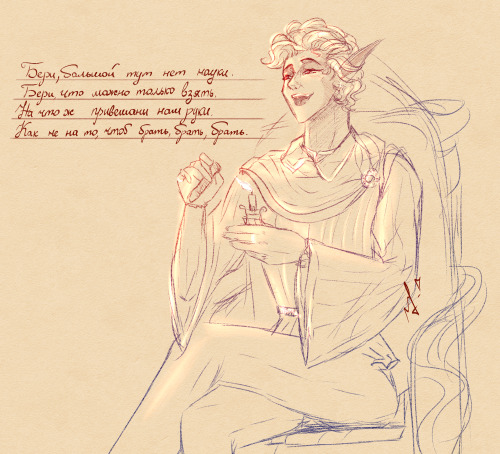 Бери, большой тут нет науки.
Бери что можно только взять.
На что ж привешаны наш руки.
Как не на то, чтоб брать, брать, брать.